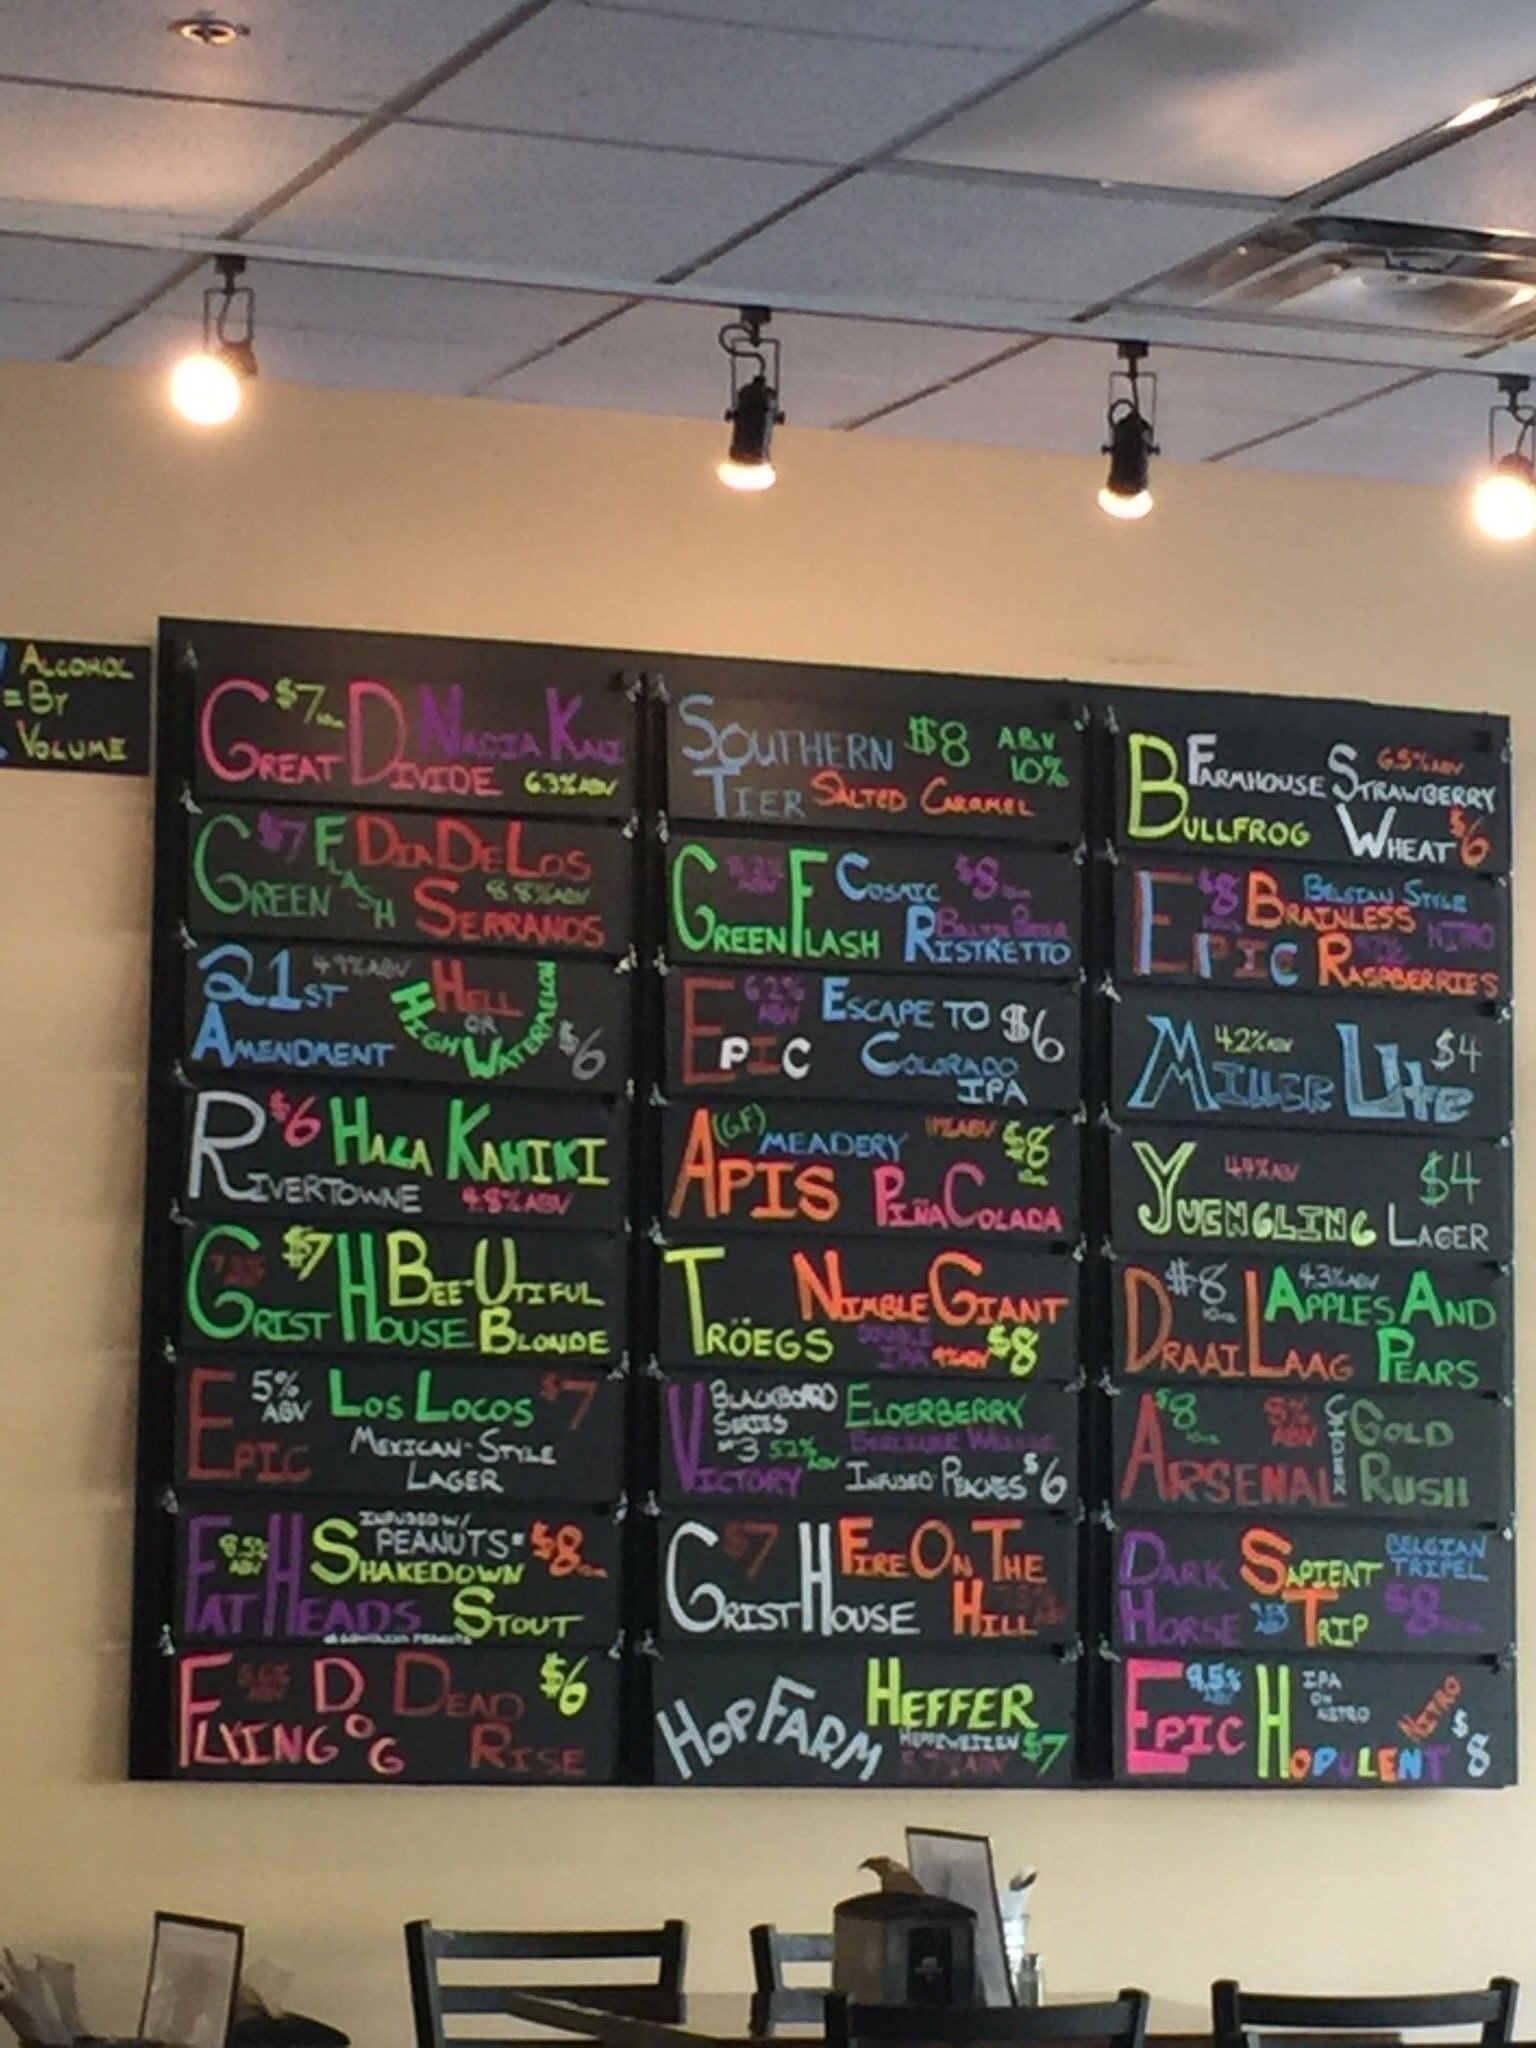 ALCOHOL
= BY
VOLUME
GREAT DIVIDE $7 NADIA KALI 6.3% ABV
GREEN FLASH $7 DIA DE LOS SERRANOS 8.8% ABV
21ST AMENDMENT 4.9% ABV HELL OR HIGH WATERMELON $6
RIVERTOWNE $6 HALA KAHIKI 4.8% ABV
GRIST HOUSE $7 BEE-UTIFUL BLONDE
EPIC 5% ABV LOS LOCOS $7
MEXICAN-STYLE
LAGER
FAT HEADS 8.5% ABV INFUSED W/ PEANUTS $8
SHAKEDOWN
STOUT
FLYING DOG DEAD RISE $6
SOUTHERN TIER $8 ABV 10%
SALTED CARAMEL
GREEN FLASH COSMIC RISTRETTO $8
EPIC 6.2% ABV ESCAPE TO COLORADO IPA $6
(GF) MEADERY 11% ABV $8
APIS PIÑA COLADA
TRÖEGS NIMBLE GIANT
DOUBLE IPA 9% ABV $8
VICTORY BLACKBOARD SERIES #3 5.2% ABV
ELDERBERRY
BERLINER WEISSE
INFUSED PEACHES $6
GRIST HOUSE $7 FIRE ON THE HILL
HOP FARM HEFFER
HEFEWEIZEN $7
BULLFROG FARMHOUSE STRAWBERRY WHEAT 6.5% ABV $6
EPIC $8 BELGIAN STYLE
BRAINLESS NITRO
RASPBERRIES
MILLER LITE 4.2% ABV $4
YUENGLING LAGER 4.4% ABV $4
DRAAI LAAG $8 4.3% ABV APPLES AND PEARS
ARSENAL $8 8% ABV CIDER GOLD RUSH
DARK HORSE SAPIENT TRIP BELGIAN TRIPEL $8
EPIC 9.5% HOPULENT IPA ON NITRO NITRO $8